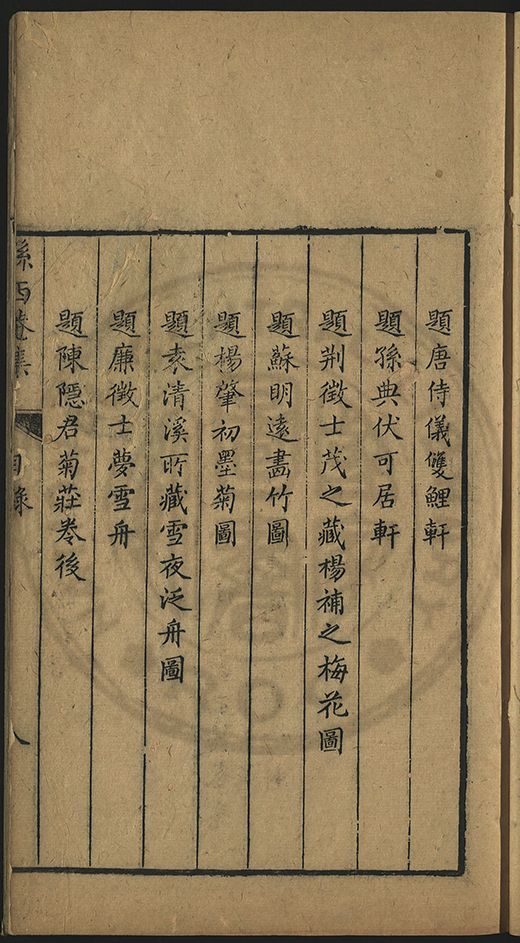 題唐侍儀雙鯉軒
題孫典伏可居軒
題荆徵士茂之藏楊補之梅花圖
題蘇明遠畵竹圖
題楊肇初墨菊圖
題袁清溪所藏雪夜泛舟圖
題廉徵士夢雪舟
題陳隱君菊莊卷後
孫西菴集
目錄
八